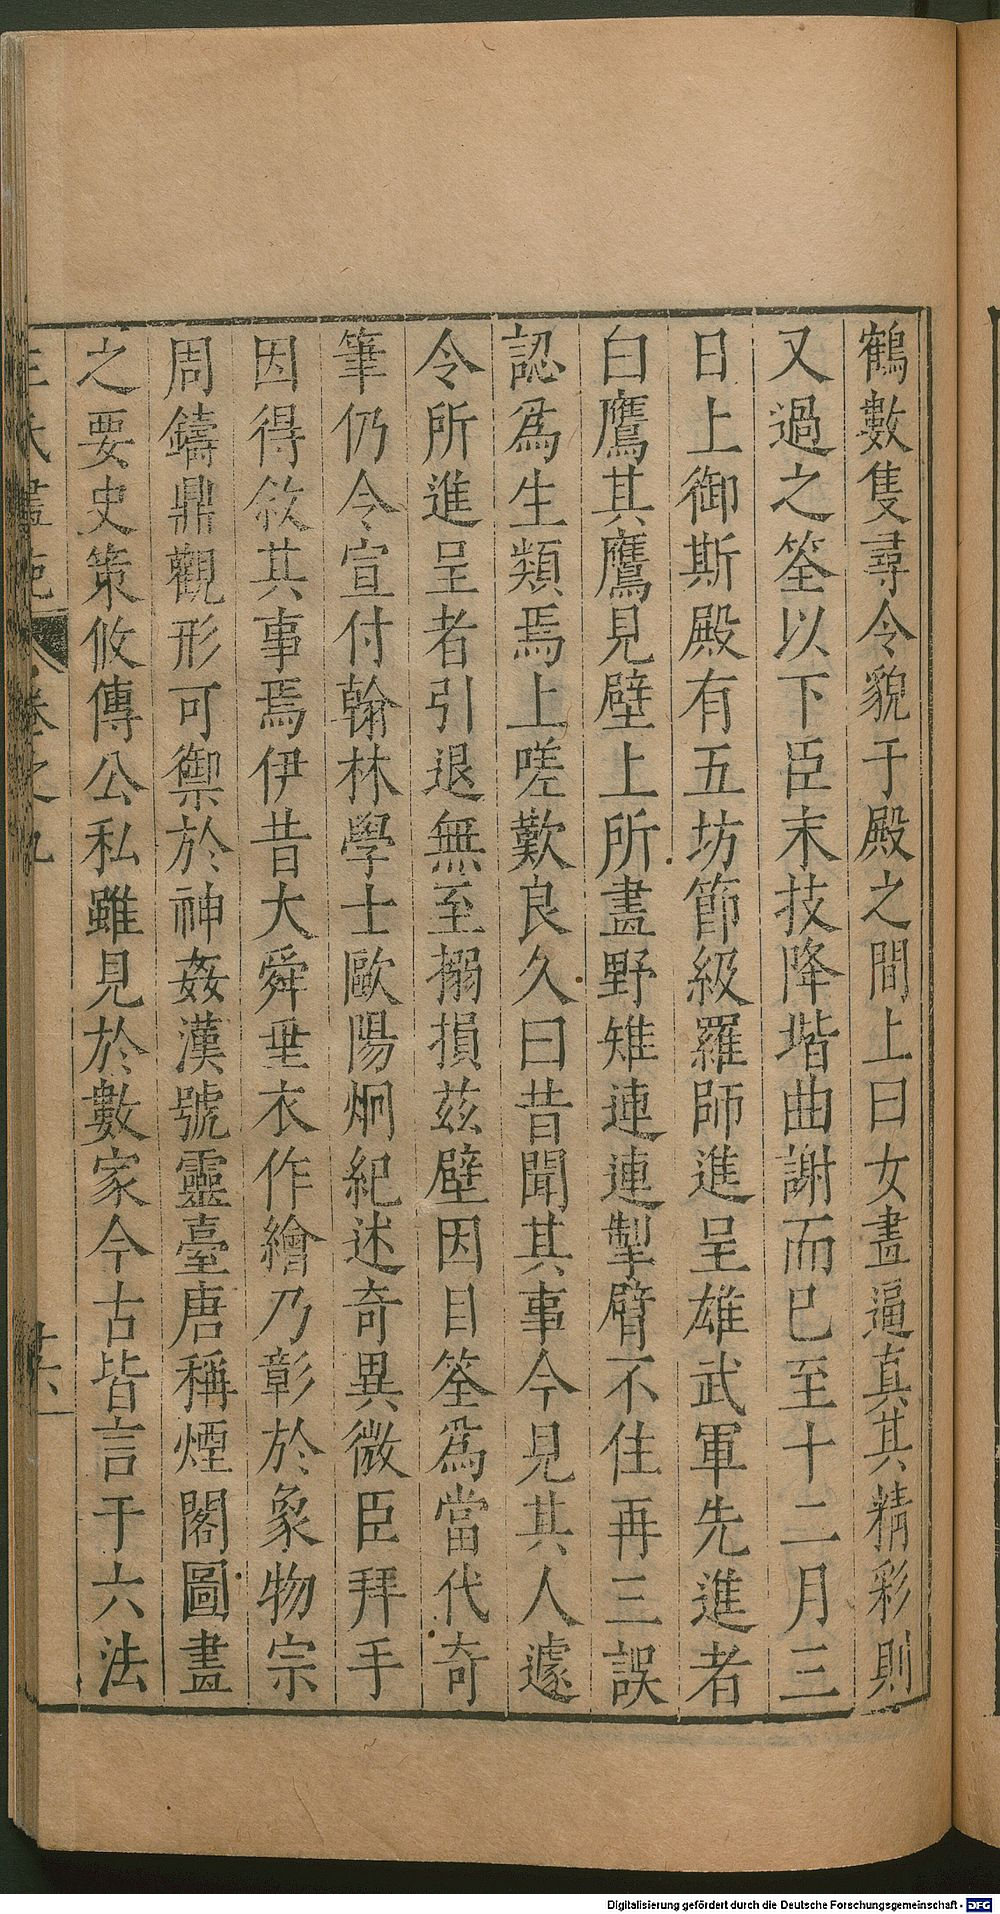 鶴數隻尋令貌于殿之間上曰女畫逼真其精彩則
又過之筌以下臣末技降堦曲謝而已至十二月三
日上御斯殿有五坊節級羅師進呈雄武軍先進者
白鷹其鷹見壁上所畫野雉連連掣臂不住再三誤
認爲生類焉上嗟歎良久曰昔聞其事今見其人遽
令所進呈者引退無至搦損茲壁因目筌爲當代奇
筆仍令宣付翰林學士歐陽炯紀述奇異微臣拜手
因得敘其事焉伊昔大舜垂衣作繪乃彰於象物宗
周鑄鼎觀形可禦於神姦漢號靈臺唐稱煙閣圖畫
之要史策攸傳公私雖見於數家今古皆言于六法
王氏畫苑 卷之九 廿六
Digitalisierung gefördert durch die Deutsche Forschungsgemeinschaft - DFG